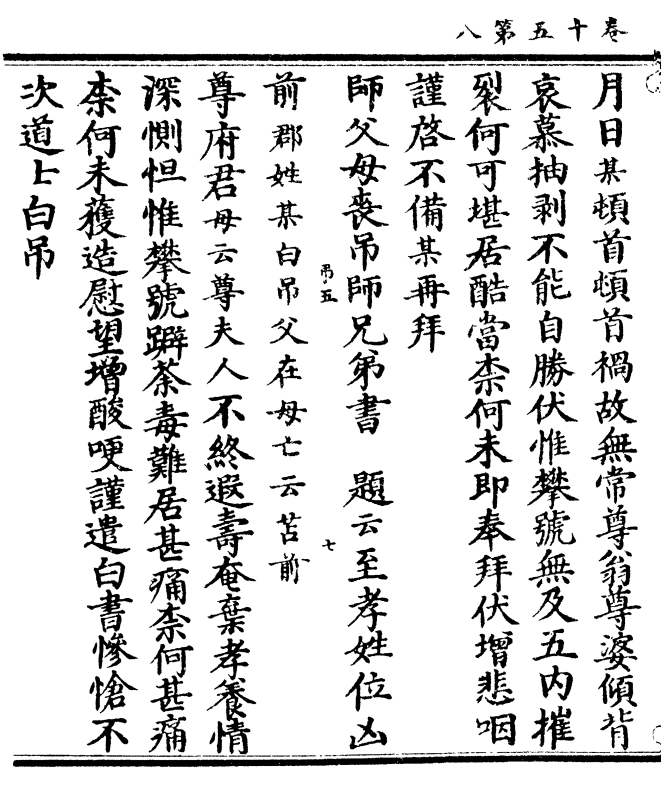 卷十五第八
月日某頓首頓首禍故無常尊翁尊婆傾背
哀慕抽剥不能自勝伏惟攀號無及五内摧
裂何可堪居酷當柰何未即奉拜伏增悲咽
謹啓不備某再拜
師父母喪吊師兄弟書　題云至孝姓位凶
吊·五
七
前郡姓某白吊父在母亡云苫前
尊府君母云尊夫人不終遐壽奄棄孝養情
深惻怛惟攀號躃荼毒難居甚痛柰何甚痛
柰何未蕿造慰望增酸哽謹遣白書慘愴不
次道士白吊